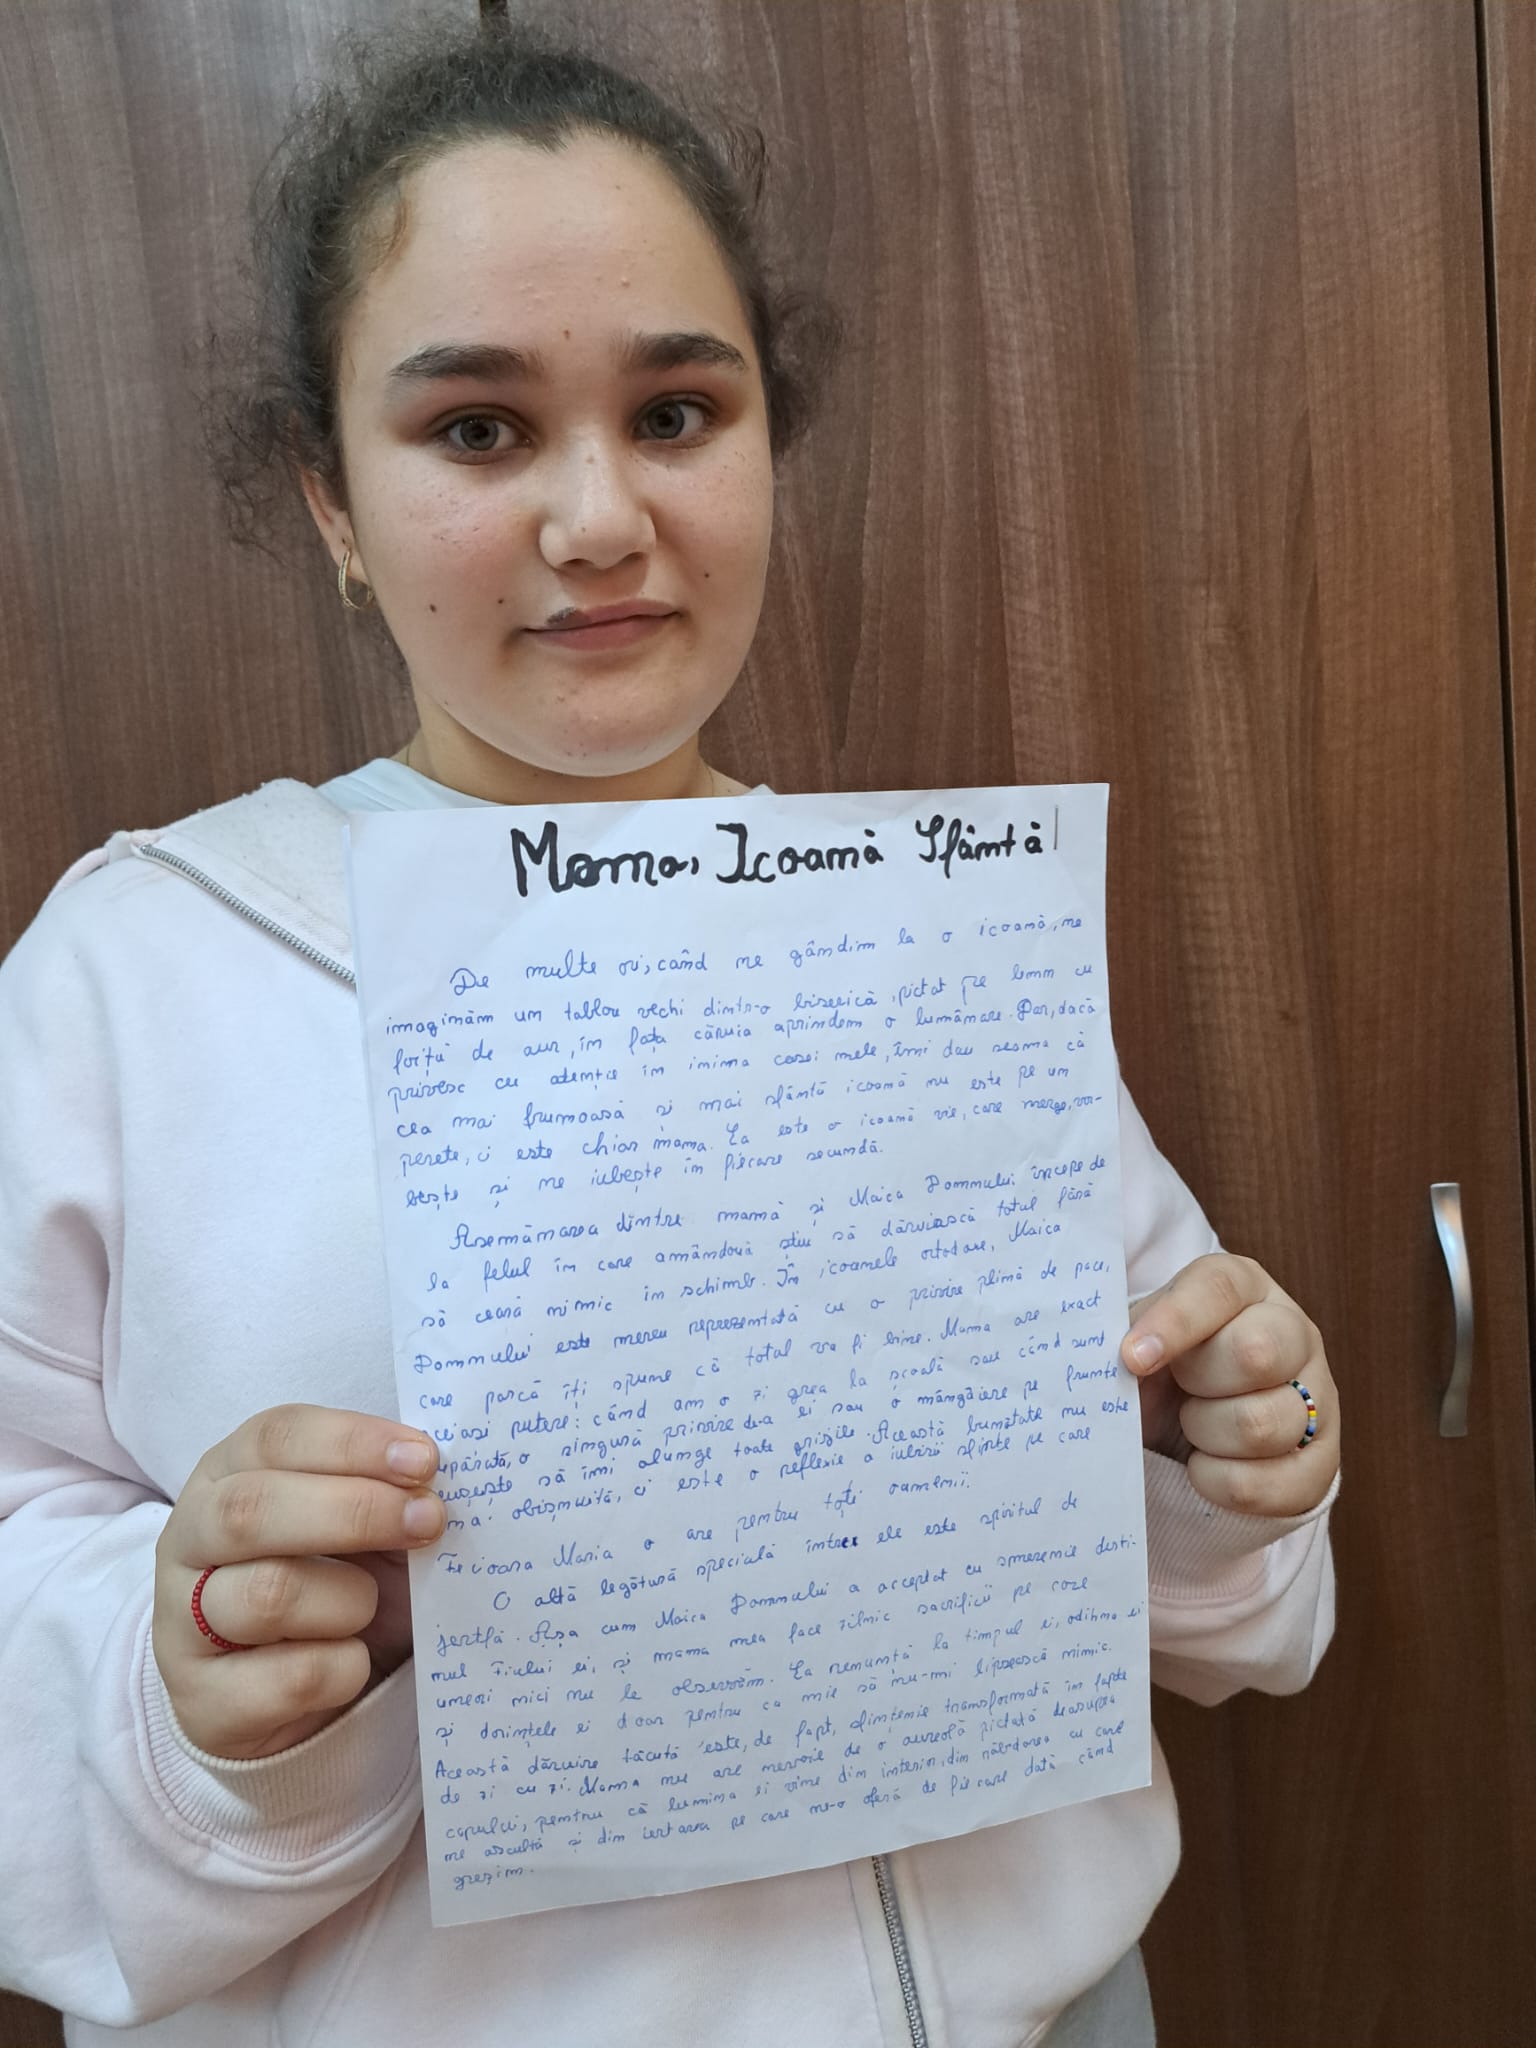 Mama, Icoană Sfântă
De multe ori, când ne gândim la o icoană, ne
imaginăm un tablou vechi dintr-o biserică, pictat pe lemn cu
foiță de aur, în fața căruia aprindem o lumânare. Dar, dacă
privesc cu atenție în inima casei mele, îmi dau seama că
cea mai frumoasă și mai sfântă icoană nu este pe un
perete, ci este chiar mama. Ea este o icoană vie, care merge, vor-
bește și ne iubește în fiecare secundă.
Asemănarea dintre mamă și Maica Domnului începe de
la felul în care amândouă știu să dăruiască totul fără
să ceară nimic în schimb. În icoanele ortodoxe, Maica
Domnului este mereu reprezentată cu o privire plină de pace,
care parcă îți spune că totul va fi bine. Mama are exact
aceiași putere: când am o zi grea la școală sau când sunt
supărată, o singură privire de-a ei sau o mângâiere pe frunte
reușește să îmi alunge toate grijile. Această bunătate nu este
una obișnuită, ci este o reflexie a iubirii sfinte pe care
Fecioara Maria o are pentru toți oamenii.
O altă legătură specială între ele este spiritul de
jertfă. Așa cum Maica Domnului a acceptat cu smerenie desti-
nul Fiului ei, și mama mea face zilnic sacrificii pe care
uneori nici nu le observăm. Ea renunță la timpul ei, odihna ei
și dorințele ei doar pentru ca mie să nu-mi lipsească nimic.
Această dăruire tăcută este, de fapt, sfințenie transformată în fapte
de zi cu zi. Mama nu are nevoie de o aureolă pictată deasupra
capului, pentru că lumina ei vine din interior, din răbdarea cu care
ne ascultă și din iertarea pe care ne-o oferă de fiecare dată când
greșim.